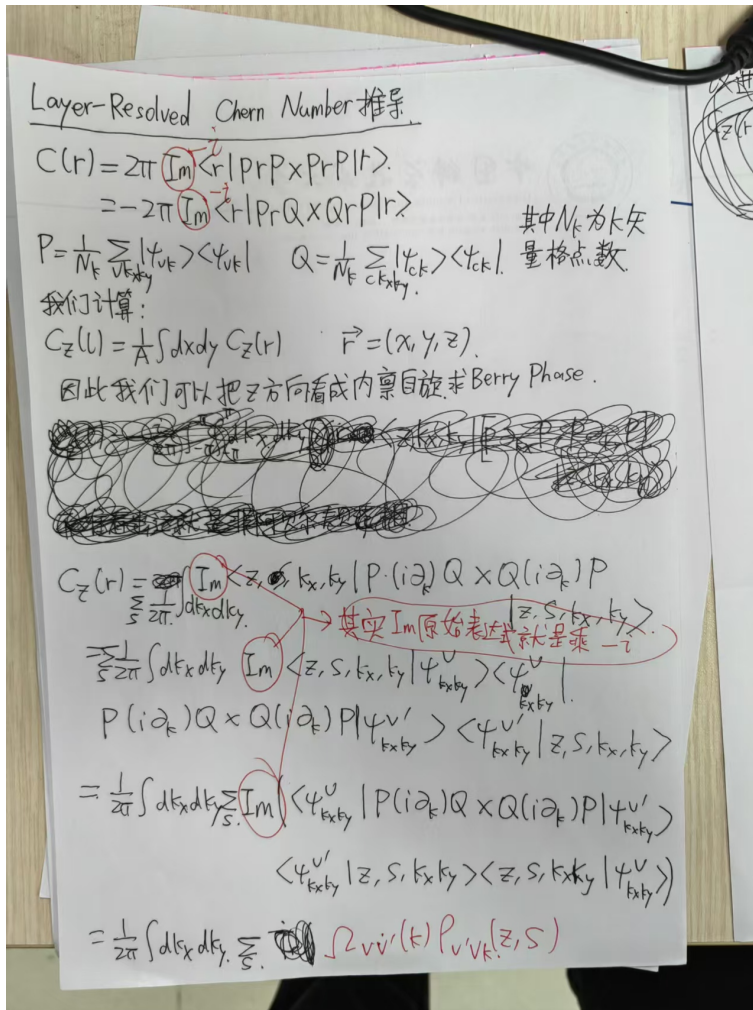 Layer-Resolved Chern Number推导
C(r)=2π Im -i <r|PrP×PrP|r>.
=-2π Im -i <r|PrQ×QrP|r>
其中Nk为k矢
P=1/Nk Σ_{vkxky}|ψvk><ψvk| Q=1/Nk Σ_{ckxky}|ψck><ψck|. 量格点数.
我们计算:
Cz(l)=1/A∫dxdy Cz(r) r⃗=(x,y,z).
因此我们可以把z方向看成内禀自旋.求Berry Phase.
Cz(r)=Σ_s 1/2π∫dkxdky Im<z,s,kx,ky|P·(i∂k)Q×Q(i∂k)P
|z,s,kx,ky>.
→其实Im原始表达式就是乘 -i
=Σ_s 1/2π∫dkxdky Im <z,s,kx,ky|ψ^v_{kxky}><ψ^v_{kxky}|.
P(i∂k)Q×Q(i∂k)P|ψ^{v'}_{kxky}><ψ^{v'}_{kxky}|z,s,kx,ky>
=1/2π∫dkxdky Σ_s. Im(<ψ^v_{kxky}|P(i∂k)Q×Q(i∂k)P|ψ^{v'}_{kxky}>
<ψ^{v'}_{kxky}|z,s,kxky><z,s,kxky|ψ^v_{kxky}>)
=1/2π∫dkxdky. Σ_s. Ωvv'(k)ρv'vk.(z,s)